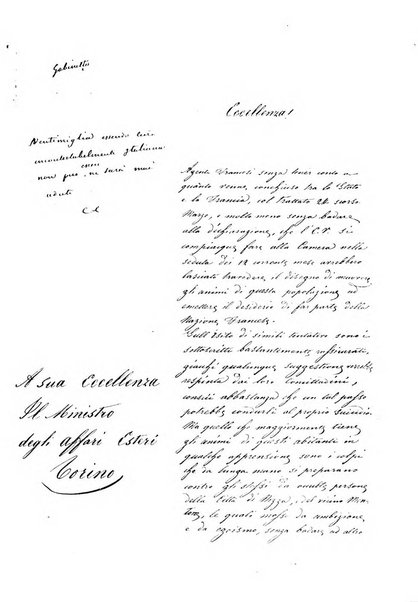 Gabinetto
Ventimiglia essendo terra
incontestabilmente Italiana
non può essere ne sarà mai
ceduta
C C
A Sua Eccellenza
Il Ministro
degli affari Esteri
Torino
Eccellenza!
Agenti Francesi senza tener conto a
quanto venne conchiuso tra lo Stato
e la Francia, col trattato 24 scorso
Marzo, e molto meno senza badare
alla dichiarazione, che l'E.V. si
compiacque fare alla Camera nella
seduta dei 12 corrente mese avrebbero
lasciato travedere il disegno di muovere
gli animi di questa popolazione ad
emettere il desiderio di far parte della
Nazione Francese.
Sull'esito di simili tentativi sono i
sottoscritti bastantemente rassicurati,
giacchè qualunque suggestione verrebbe
respinta dai loro Concittadini,
conscii abbastanza che un tal passo
potrebbe condurli al proprio suicidio.
Ma quello che maggiormente tiene
gli animi di questi abitanti in
qualche apprensione sono i colpi
che da lunga mano si preparano
contro gli stessi da occulte persone
della Città di Nizza, del vicino Men-
tone, le quali mosse da ambizione,
e da egoismo, senza badare ad altro